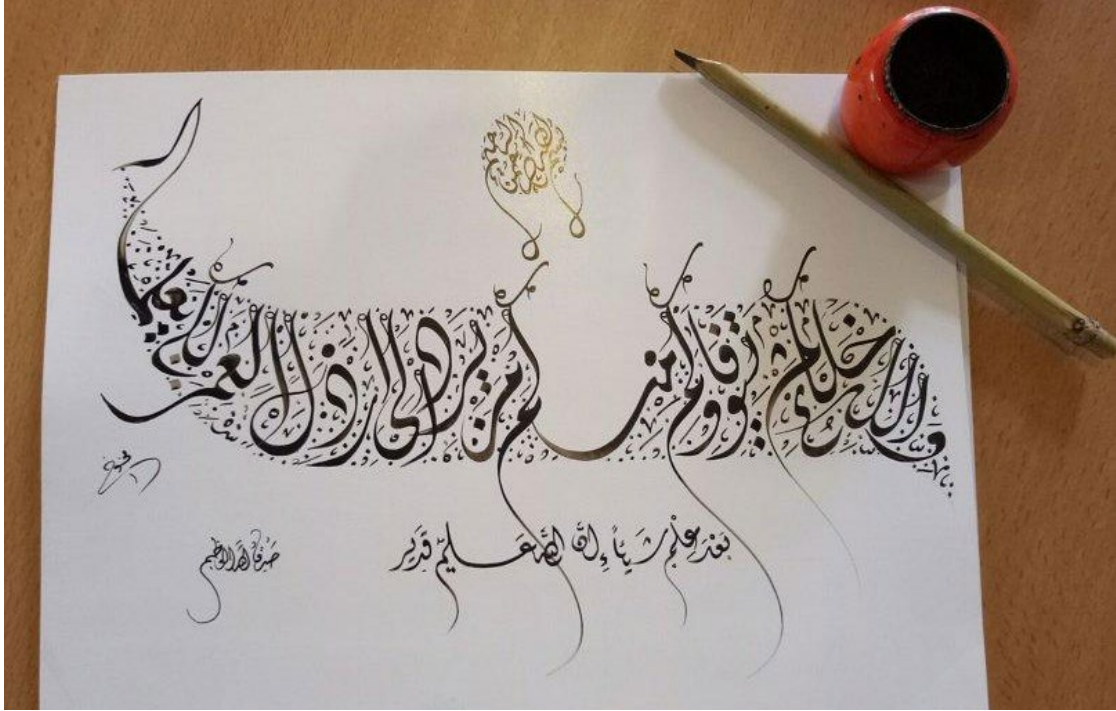 بسم الله الرحمن الرحيم
والله خلقكم ثم يتوفاكم ومنكم من يرد إلى أرذل العمر لكيلا يعلم
بَعْدَ عِلْمٍ شَيْئاً إِنَّ اللَّهَ عَلِيمٌ قَدِير
صدق الله العظيم